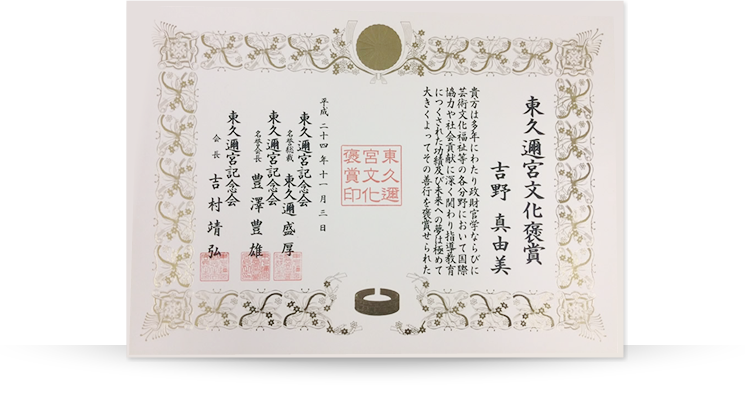 東久邇宮文化褒賞
吉野 真由美
貴方は多年にわたり政財官学ならびに
芸術文化福祉等の各分野において国際
協力や社会貢献に深く関わり指導教育
につくされた功績及び未来への夢は極めて
大きくよってその善行を褒賞せられた
東久邇
宮文化
褒賞印
平成二十四年十一月三日
東久邇宮記念会
名誉総裁 東久邇 盛厚
東久邇宮記念会
名誉会長 豊澤豊雄
東久邇宮記念会
会長 吉村靖弘